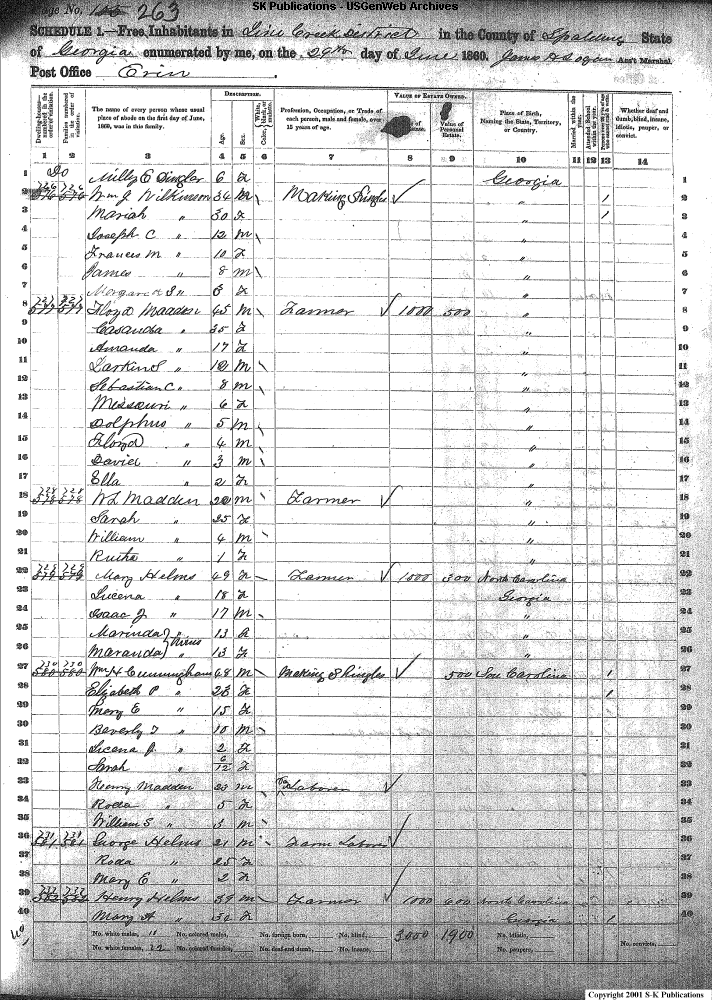 SK Publications - USGenWeb Archives
Page No. 263
SCHEDULE 1.—Free Inhabitants in Line Creek District in the County of Spalding State
of Georgia enumerated by me, on the 29th day of June 1860. Ass't Marshal.
Post Office Erin
Dwelling-houses— numbered in the order of visitation. Families numbered in the order of visitation. The name of every person whose usual place of abode on the first day of June, 1860, was in this family. DESCRIPTION. Age. Sex. Color, White, black, or mulatto. Profession, Occupation, or Trade of each person, male and female, over 15 years of age. VALUE OF ESTATE OWNED. Value of Personal Estate. Place of Birth, Naming the State, Territory, or Country. Married within the year. Attended School within the year. Whether deaf and dumb, blind, insane, idiotic, pauper, or convict.
1 2 3 4 5 6 7 8 9 10 11 12 13 14
1 Milly E 6 F Georgia 1
2 726 726 Wm J Wilkinson 34 M Making Shingles " / 2
3 Mariah " 30 F " / 3
4 Joseph C " 12 M " 4
5 Frances M " 10 F " 5
6 James " 8 M " 6
7 " F " 7
8 727 727 Floyd Madden 45 M Farmer 1000 500 " 8
9 Casandra " 35 F " 9
10 Amanda " 17 F " 10
11 Larkin S " 12 M " 11
12 Sebastian C " 8 M " 12
13 Missouri " 6 F " 13
14 Dolphus " 5 M " 14
15 Floyd " 4 M " 15
16 David " 3 M " 16
17 Ella " 2 F " 17
18 728 728 Madden M Farmer " 18
19 Sarah " 25 F " 19
20 William " 4 M " 20
21 " 1 F " 21
22 729 729 Mary Helms 49 F Farmer 1000 300 North Carolina 22
23 Lucena " 18 F Georgia 23
24 Isaac J " 17 M " 24
25 Marinda } " 13 " 25
26 Maranda } Twins " 13 F " 26
27 730 730 Wm H Cunningham 48 M Making Shingles 500 Sou Carolina / 27
28 Elizabeth P " F / 28
29 Mary E " 15 F 29
30 Beverly T " 10 M 30
31 Lucena " 2 F 31
32 Sarah " 6/12 F 32
33 Henry Madden M Laborer 33
34 Roda " 5 F 34
35 William S " 3 M 35
36 731 731 George Helms 21 M Farm Laborer 36
37 Roda " 25 F 37
38 Mary E " 2 F 38
39 732 732 Henry Helms 39 M Farmer 1000 600 North Carolina 39
40 Mary A " F Georgia / 40
No. white males, No. colored males, No. foreign born, No. blind, 3000 1900 No. idiotic,
No. white females, 22 No. colored females, No. deaf and dumb, No. insane, No. paupers, No. convicts,
Copyright 2001 S-K Publications